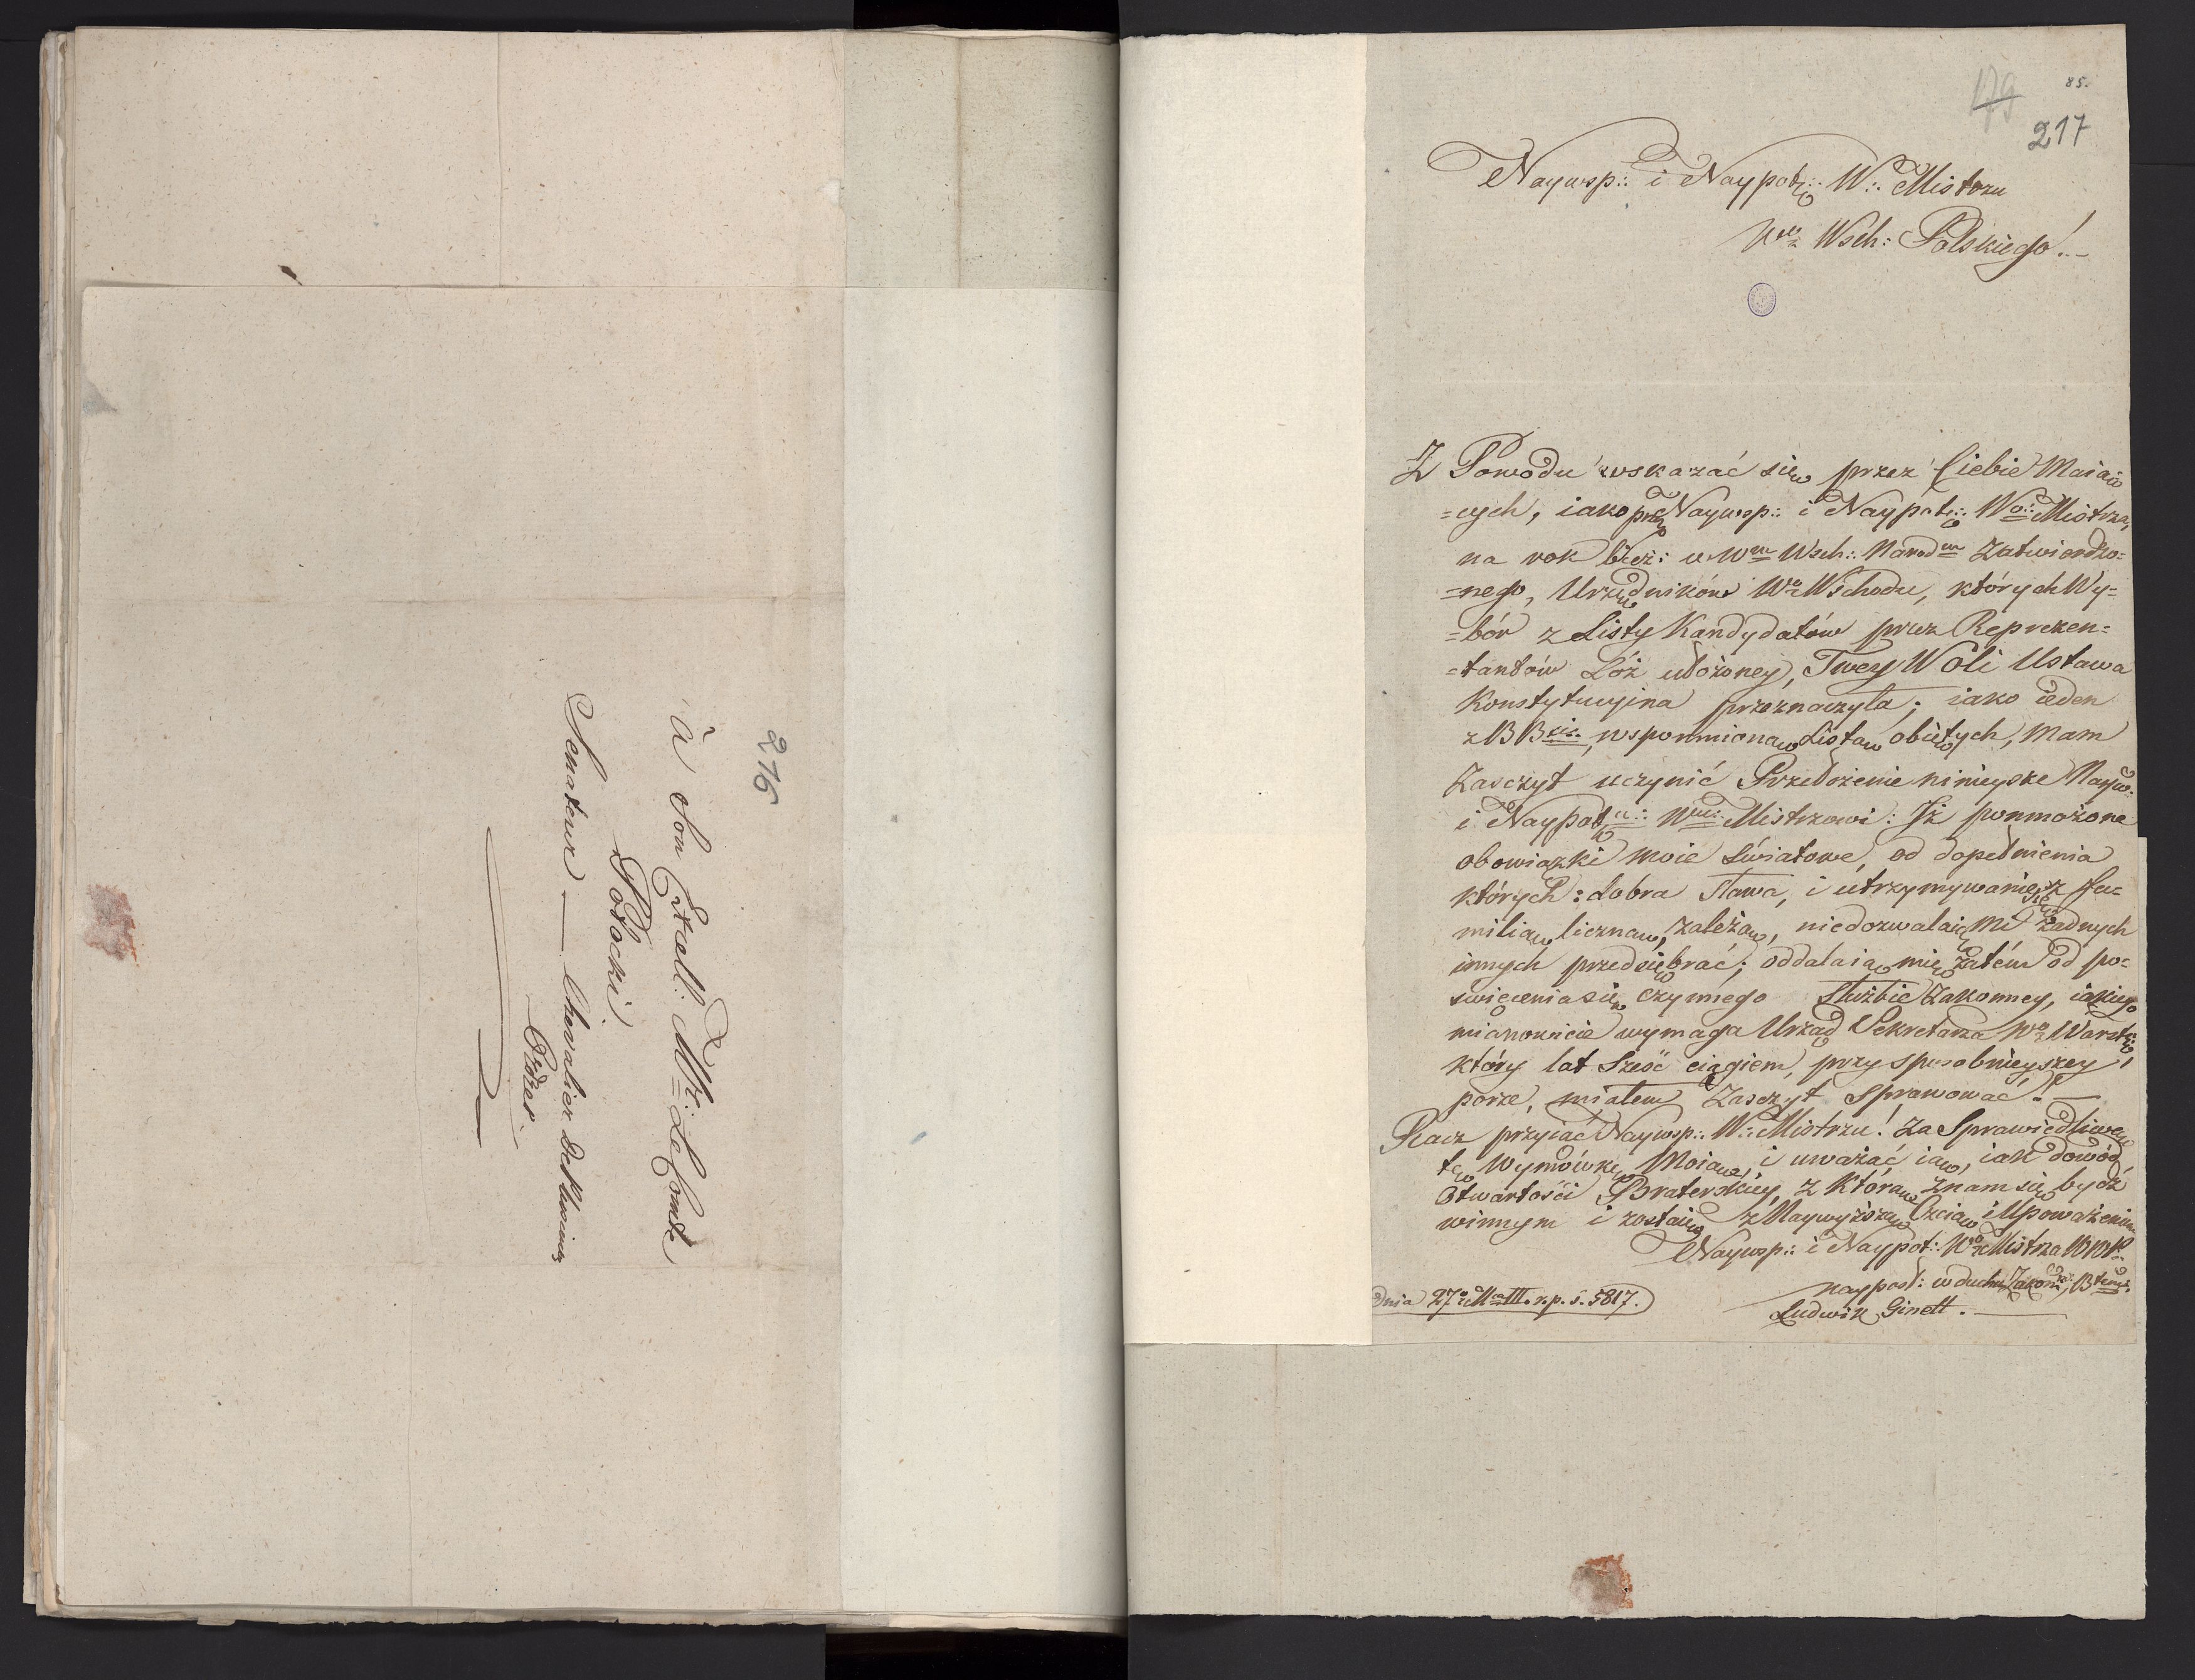 216
à Son Excell: Mr: Le Comte
Potocki
Senateur — Chevalier de Plusieurs
Ordres
179
85.
217
Naywsp∴ i Naypotę∴ W∴ Mistrzu
Wgo Wsch: Polskiego!
Z Powodu wskazać się przez Ciebie Maiąc
=cych, iako przez Naywsp∴ i Naypotę∴ Wo∴ Mistrza,
na rok bież: w Wm Wsch∴ Narodm Zatwierdzo=
=nego, Urzędników Wo Wschodu, których Wy=
=bór z Listy Kandydatów przez Reprezen=
=tantów Lóż ułożoney, Twey Woli Ustawa
Konstytucyina przeznaczyła; iako ieden
z BBci wspomnioną Listą obiętych, mam
Zaszczyt uczynić Przełożenie ninieysze Nayw:
i Naypotę∴ Wmu∴ Mistrzowi: Iż pomnożone
obowiązki moie Światowe, od dopełnienia
których: dobra sława, i utrzymywanie się z fa=
milią liczną, zależą, niedozwalaią mi żadnych
innych przedsiębrać; oddalaią mię zatém od po=
święcenia się czynnego Służbie Zakonney, iakiego
mianowicie wymaga Urząd Sekretarza Wo Warsta:,
który lat Sześć ciągiem, przy sposobnieyszey
porze, miałem Zaszczyt sprawować. —
Racz przyiąć Naywsp∴ W∴ Mistrzu! za Sprawiedliwą
tę Wymówkę Moią, i uważać ią, iak dowód
Otwartości Braterskiey, z którą znam się bydź
winnym i zostaię z Naywyższą Czcią i Upoważeniem
Naywsp∴ i Naypot∴ Wgo Mistrza
naypost: w duchu Zakonu,
Ludwik Ginett. —
Dnia 27o Mca III. r. p. ś. 5817.